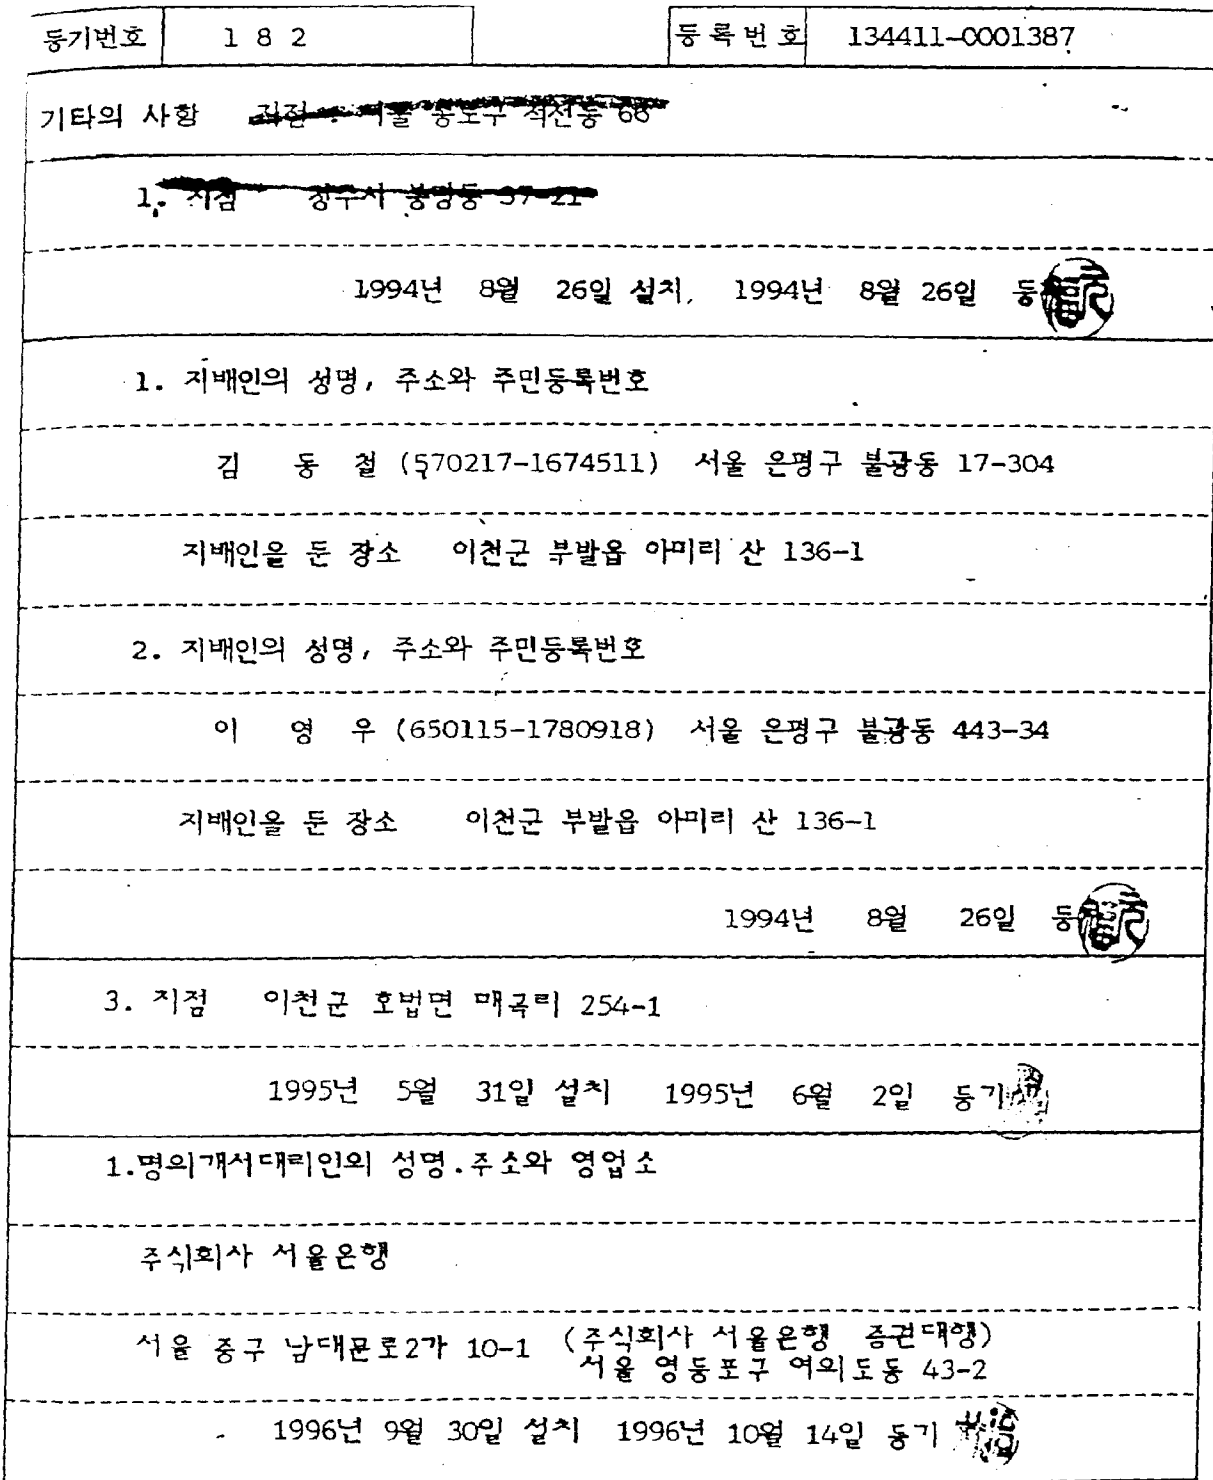 등기번호 1 8 2 등록번호 134411-0001387
기타의 사항
1. 지점 37-21
1994년 8월 26일 설치, 1994년 8월 26일 등
1. 지배인의 성명, 주소와 주민등록번호
김 동 철 (570217-1674511) 서울 은평구 불광동 17-304
지배인을 둔 장소 이천군 부발읍 아미리 산 136-1
2. 지배인의 성명, 주소와 주민등록번호
이 영 우 (650115-1780918) 서울 은평구 불광동 443-34
지배인을 둔 장소 이천군 부발읍 아미리 산 136-1
1994년 8월 26일 등
3. 지점 이천군 호법면 매곡리 254-1
1995년 5월 31일 설치 1995년 6월 2일 등기
1.명의개서대리인의 성명.주소와 영업소
주식회사 서울은행
서울 중구 남대문로2가 10-1 (주식회사 서울은행 증권대행)
서울 영등포구 여의도동 43-2
1996년 9월 30일 설치 1996년 10월 14일 등기